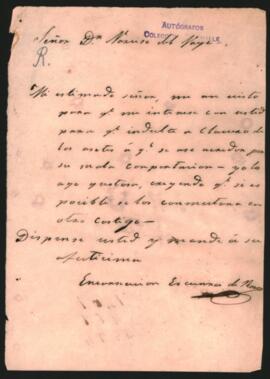 AUTÓGRAFOS
Señor Dn
R.
Mi estimado señor, me an visto
para q.e me interese con usted
para q.e indulte a Clausra de
los asotes á q.e se ase acreedor por
su mala comportacion – yo lo
ago gustosa, creyendo q.e si es
posible se los conmutara en
otro castigo –
Dispense usted y mande á su
afectisima
Encarnacion Escurra de Rosas